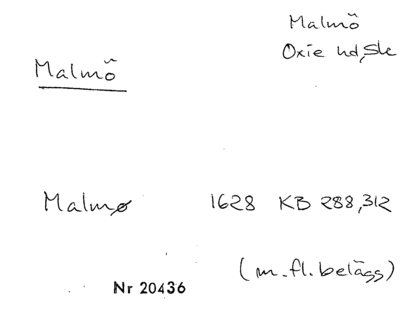 Malmö
Oxie hd, Sk
Malmö
Malmø 1628 KB 288,312
(m.fl. belägg)
Nr 20436